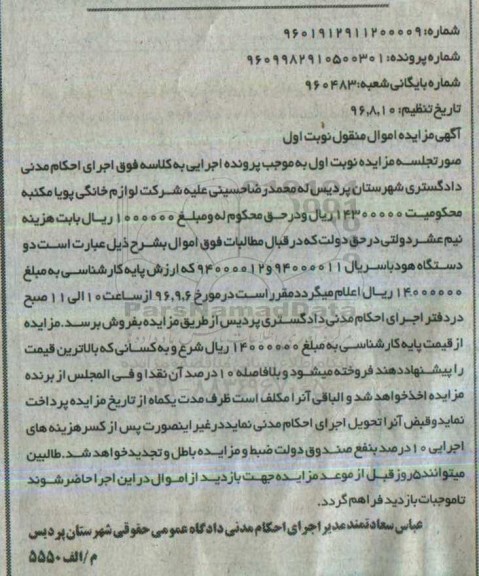 شماره: ۹۶۰۱۹۱۲۹۱۱۲۰۰۰۰۹
شماره پرونده: ۹۶۰۹۹۸۲۹۱۰۵۰۰۳۰۱
شماره بایگانی شعبه: ۹۶۰۴۸۳
تاریخ تنظیم: ۹۶,۸,۱۰
آگهی مزایده اموال منقول نوبت اول
صورتجلسه مزایده نوبت اول به موجب پرونده اجرایی به کلاسه فوق اجرای احکام مدنی
دادگستری شهرستان پردیس له محمدرضا حسینی علیه شرکت لوازم خانگی پویا مکنبه
محکومیت ۱۴۳۰۰۰۰۰ ریال و در حق محکوم له و مبلغ ۱۰۰۰۰۰۰ ریال بابت هزینه
نیم عشر دولتی در حق دولت که در قبال مطالبات فوق اموال بشرح ذیل عبارت است دو
دستگاه هود با سریال ۹۴۰۰۰۰۱۱ و ۹۴۰۰۰۰۱۲ که ارزش پایه کارشناسی به مبلغ
۱۴۰۰۰۰۰۰ ریال اعلام میگردد مقرر است در مورخ ۹۶,۹,۶ از ساعت ۱۰ الی ۱۱ صبح
در دفتر اجرای احکام مدنی دادگستری پردیس از طریق مزایده بفروش برسد. مزایده
از قیمت پایه کارشناسی به مبلغ ۱۴۰۰۰۰۰۰ ریال شرع و به کسانی که بالاترین قیمت
را پیشنهاد دهند فروخته میشود و بلافاصله ۱۰ درصد آن نقدا و فی المجلس از برنده
مزایده اخذ خواهد شد و الباقی آنرا مکلف است ظرف مدت یکماه از تاریخ مزایده پرداخت
نماید و قبض آنرا تحویل اجرای احکام مدنی نماید در غیر اینصورت پس از کسر هزینه های
اجرایی ۱۰ درصد بنفع صندوق دولت ضبط و مزایده باطل و تجدید خواهد شد. طالبین
میتوانند ۵ روز قبل از موعد مزایده جهت بازدید از اموال در این اجرا حاضر شوند
تا موجبات بازدید فراهم گردد.
عباس سعادتمند مدیر اجرای احکام مدنی دادگاه عمومی حقوقی شهرستان پردیس
م/الف ۵۵۵۰
ParsNamadData